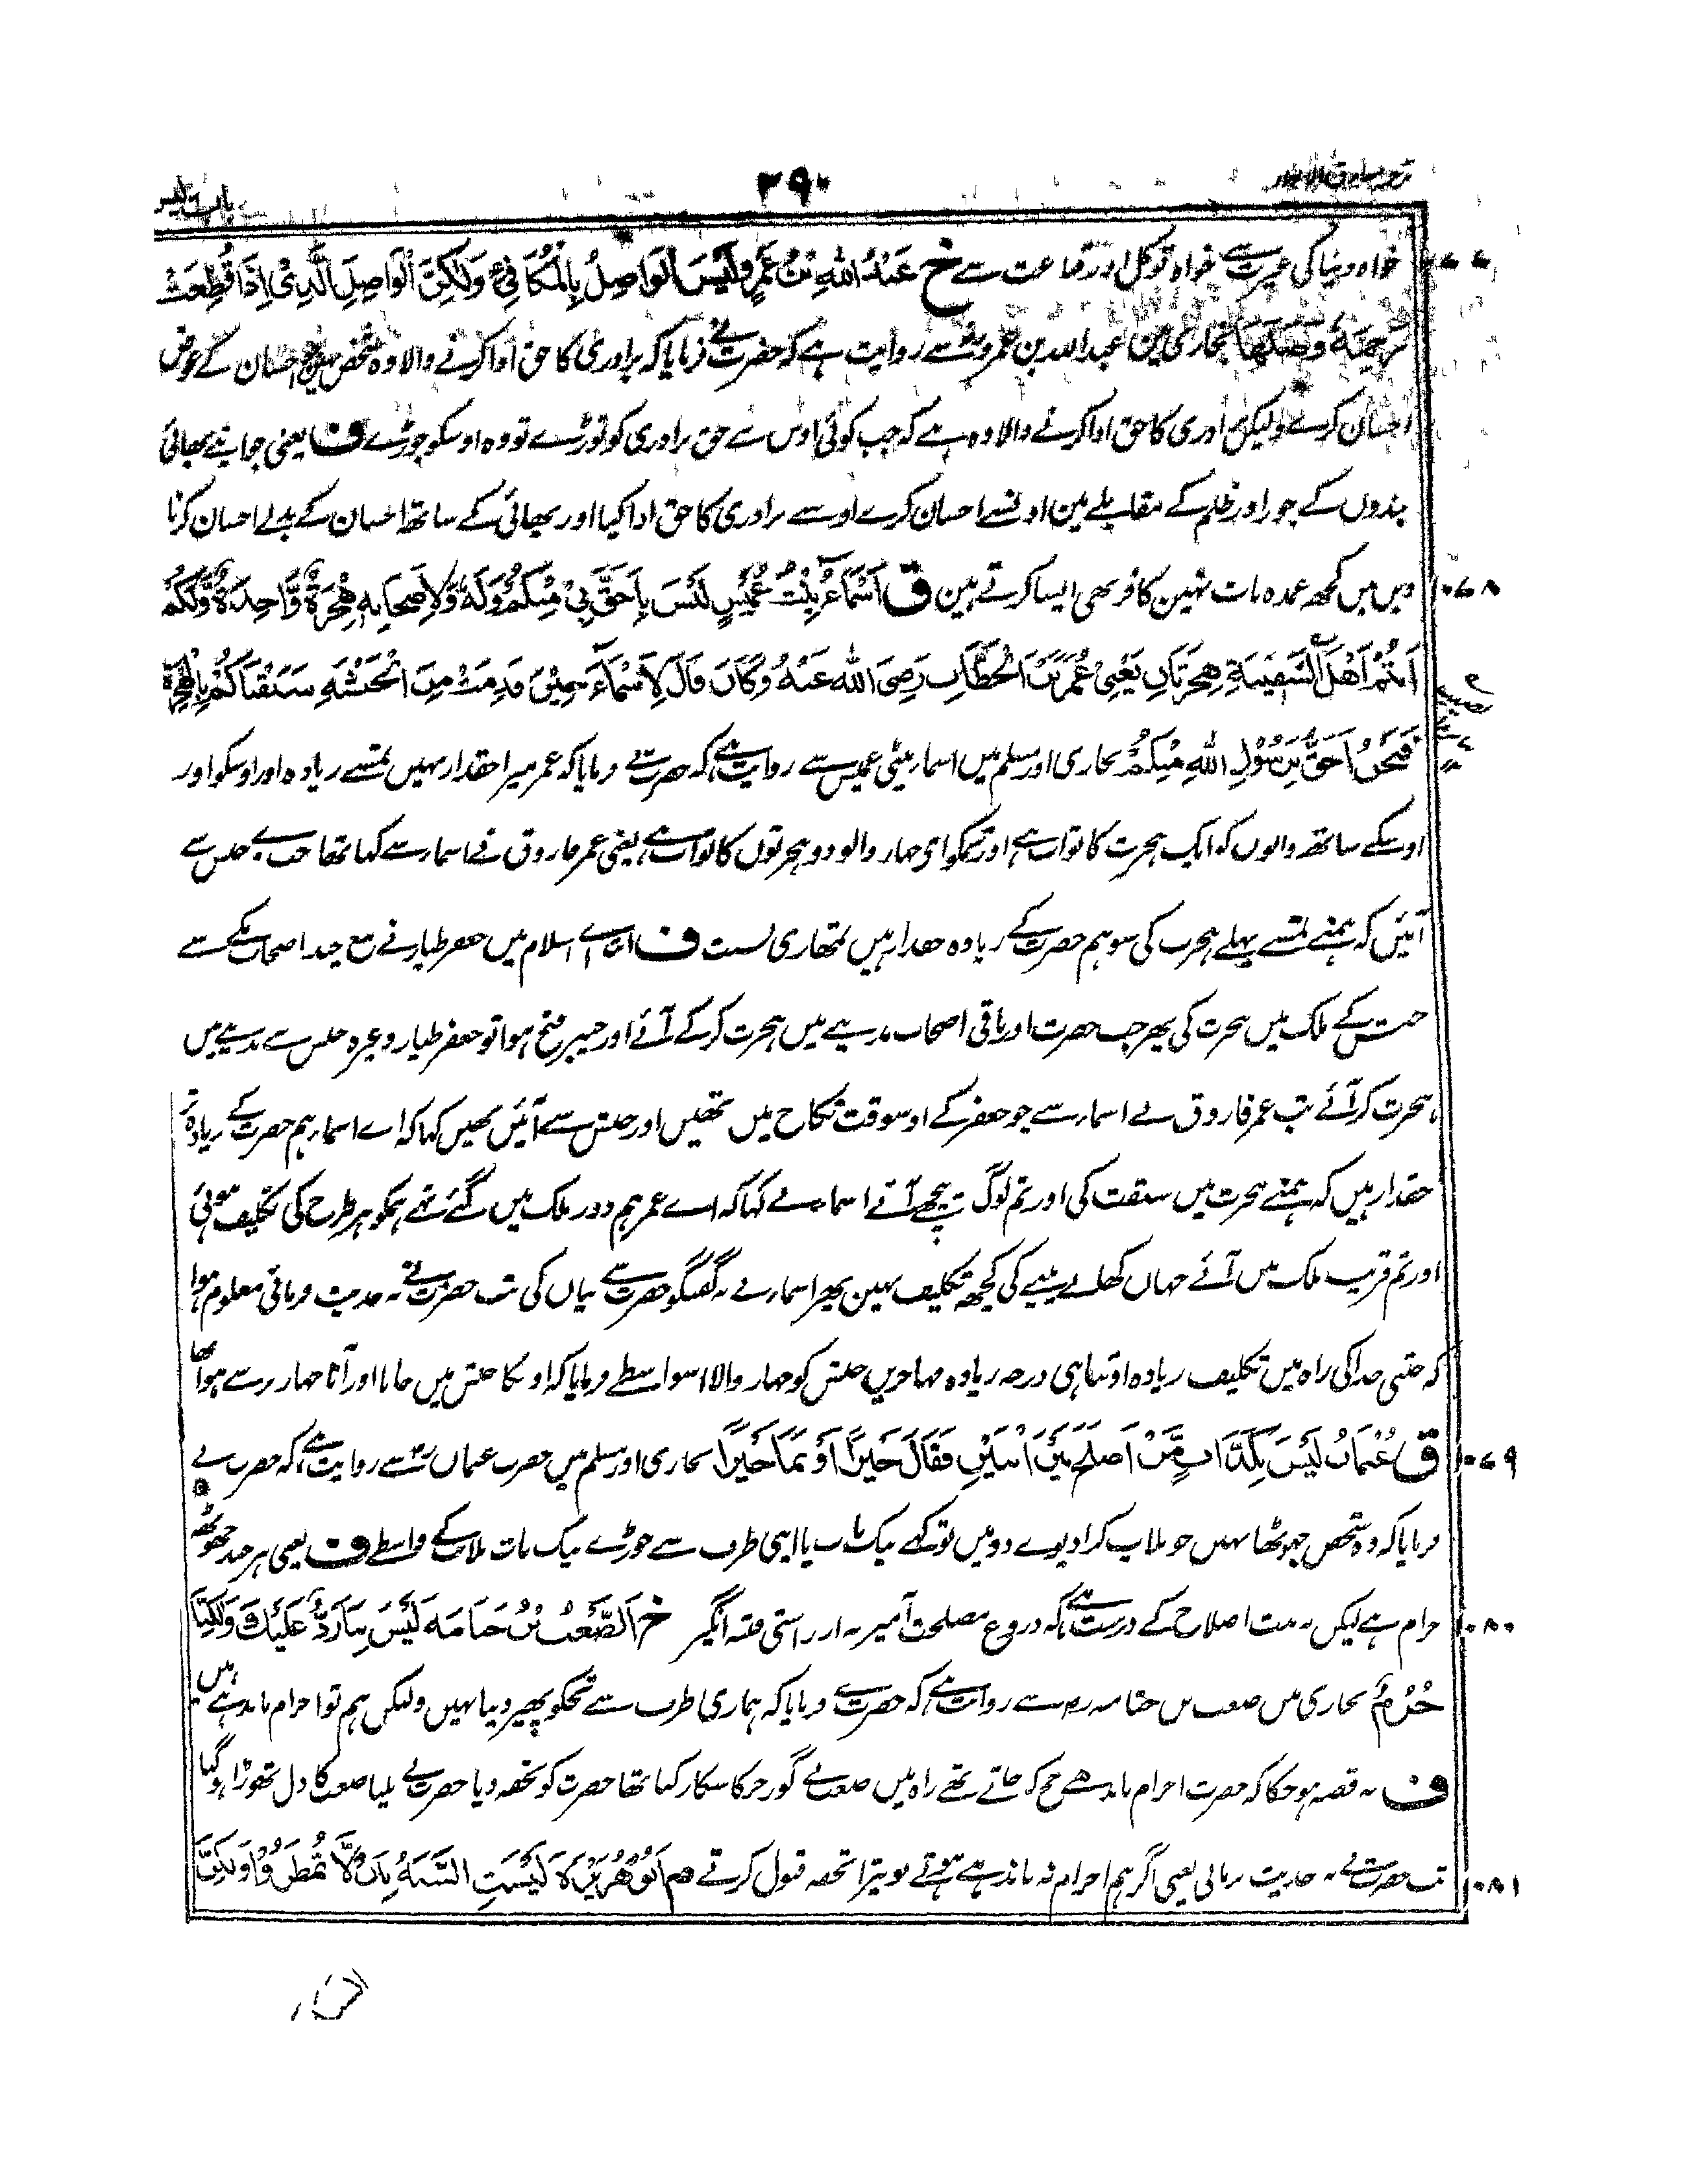 ٣٩٠
باب لیس
خواہ دنیا کی عبرت سے خواہ توکل اور قناعت سے خ عَبْدُ اللّٰهِ بْنُ عَمْرٍو لَيْسَ الْوَاصِلُ بِالْمُكَافِيْ وَلٰكِنَّ الْوَاصِلَ الَّذِيْ اِذَا قُطِعَتْ ١٠٧٧
رَحِمُهٗ وَصَلَهَا بخاری مین عبد اللہ بن عمرو سے روایت ہے کہ حضرت نے فرمایا کہ برادری کا حق ادا کرنے والا وہ شخص نہین جو احسان کے عوض
احسان کرے ولیکن برادری کا حق ادا کرنے والا وہ ہے کہ جب کوئی اوس سے حق برادری کو توڑے تو وہ اوسکو جوڑے ف یعنی جو اپنے بھائی
بندوں کے جور اور ظلم کے مقابلے مین اونسے احسان کرے اوسے برادری کا حق ادا کیا اور بھائی کے ساتھ احسان کے بدلے احسان کرنا
دیں میں کچھ عمدہ بات نہین کافر بھی ایسا کرتے ہین ق اَسْمَاءُ بِنْتُ عُمَيْسٍ لَيْسَ بِاَحَقَّ بِيْ مِنْكُمْ وَلَهٗ وَلِاَصْحَابِهٖ هِجْرَةٌ وَّاحِدَةٌ وَّلَكُمْ ١٠٧٨
اَنْتُمْ اَهْلَ السَّفِيْنَةِ هِجْرَتَانِ يَعْنِيْ عُمَرَ بْنَ الْخَطَّابِ رَضِيَ اللّٰهُ عَنْهُ وَكَانَ قَالَ لِاَسْمَاءَ حِيْنَ قَدِمَتْ مِنَ الْحَبَشَةِ سَبَقْنَاكُمْ بِالْهِجْرَةِ
فَنَحْنُ اَحَقُّ بِرَسُوْلِ اللّٰهِ مِنْكُمْ بخاری اور مسلم میں اسمار بیٹی عمیس سے روایت ہے کہ حضرت نے فرمایا کہ عمر میرا حقدار نہیں تمسے زیادہ اور اوسکو اور
اوسکے ساتھ والوں کو ایک ہجرت کا ثواب ہے اور تمکو ای جہاز والو دو ہجرتوں کا ثواب ہے یعنی عمر فاروق نے اسمار سے کہا تھا جب حبش سے
آئیں کہ ہمنے تمسے پہلے ہجرت کی سو ہم حضرت کے زیادہ حقدار ہیں تمھاری نسبت ف ابتداے اسلام میں جعفر طیار نے مع چند اصحاب مکے سے
حبش کے ملک میں ہجرت کی پھر جب حضرت اور باقی اصحاب مدینے میں ہجرت کر کے آئے اور خیبر فتح ہوا تو جعفر طیار وغیرہ حبش سے مدینے میں
ہجرت کر آئے تب عمر فاروق نے اسمار سے جو جعفر کے اوسوقت نکاح میں تھیں اور حبش سے آئیں تھیں کہا کہ اے اسمار ہم حضرت کے زیادہ تر
حقدار ہیں کہ ہمنے ہجرت میں سبقت کی اور تم لوگ پیچھے آئے اسمار نے کہا کہ اے عمر ہم دور ملک میں گئے تھے ہمکو ہر طرح کی تکلیف ہوئی
اور تم قریب ملک میں آئے جہاں کھانے پینے کی کچھ تکلیف نہین پھر اسمار نے یہ گفتگو حضرت سے بیاں کی تب حضرت نے یہ حدیث فرمائی معلوم ہوا
کہ جتنی خدا کی راہ میں تکلیف زیادہ اوتنا ہی درجہ زیادہ مہاجرین حبش کو جہاز والا اسواسطے فرمایا کہ اونکا حبش میں جانا اور آنا جہاز پر سے ہوا تھا
ق عُثْمَانُ لَيْسَ بِكَذَّابٍ مَّنْ اَصْلَحَ بَيْنَ اثْنَيْنِ فَقَالَ خَيْرًا اَوْ نَمَا خَيْرًا بخاری اور مسلم میں حضرت عثمان رض سے روایت ہے کہ حضرت نے ١٠٧٩
فرمایا کہ وہ شخص جھوٹھا نہیں جو ملاپ کرا دیوے دو میں تو کہے نیک بات یا اپنی طرف سے جوڑے نیک بات ملاپ کے واسطے ف یعنی ہر چند جھوٹھ
حرام ہے لیکن بہ نیت اصلاح کے درست ہے کہ دروغ مصلحت آمیز بہ از راستی فتنہ انگیز خ اَلصَّعْبُ بْنُ جَثَّامَةَ لَيْسَ بِنَا رَدٌّ عَلَيْكَ وَلٰكِنَّا ١٠٨٠
حُرُمٌ بخاری میں صعب بن جثامہ رض سے روایت ہے کہ حضرت نے فرمایا کہ ہماری طرف سے تجکو پھیر دینا نہیں ولیکن ہم تو احرام باندھے ہیں
ف یہ قصہ ہو چکا کہ حضرت احرام باندھے حج کو جاتے تھے راہ میں صعب نے گورخر کا شکار کیا تھا حضرت کو تحفہ دیا حضرت نے نلیا صعب کا دل تھوڑا ہو گیا
تب حضرت نے یہ حدیث فرمائی یعنی اگر ہم احرام نہ باندھے ہوتے تو تیرا تحفہ قبول کرتے م اَبُوْ هُرَيْرَةَ لَيْسَتِ السَّنَةُ بِاَنْ لَّا تُمْطَرُوْا وَلٰكِنَّ ١٠٨١